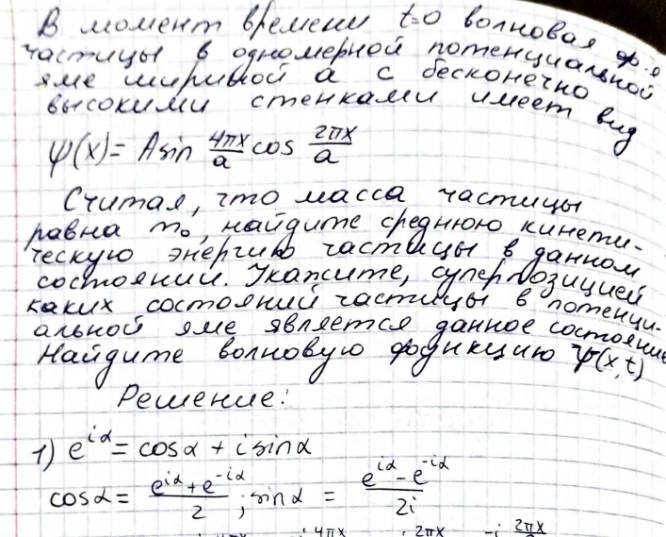 В момент времени t=0 волновая ф-я
частицы в одномерной потенциальной
яме шириной a с бесконечно
высокими стенками имеет вид
ψ(x)= A sin 4πx/a cos 2πx/a
Считая, что масса частицы
равна m₀, найдите среднюю кинети-
ческую энергию частицы в данном
состоянии. Укажите, суперпозицией
каких состояний частицы в потенци-
альной яме является данное состояние
Найдите волновую функцию Ψ(x,t)
Решение:
1) e^{iα} = cosα + i sinα
cosα = (e^{iα} + e^{-iα})/2 ; sinα = (e^{iα} - e^{-iα})/2i